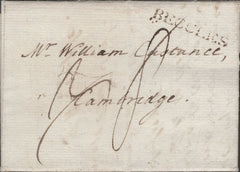 BECCLES
Mr. William Custance,
Cambridge.